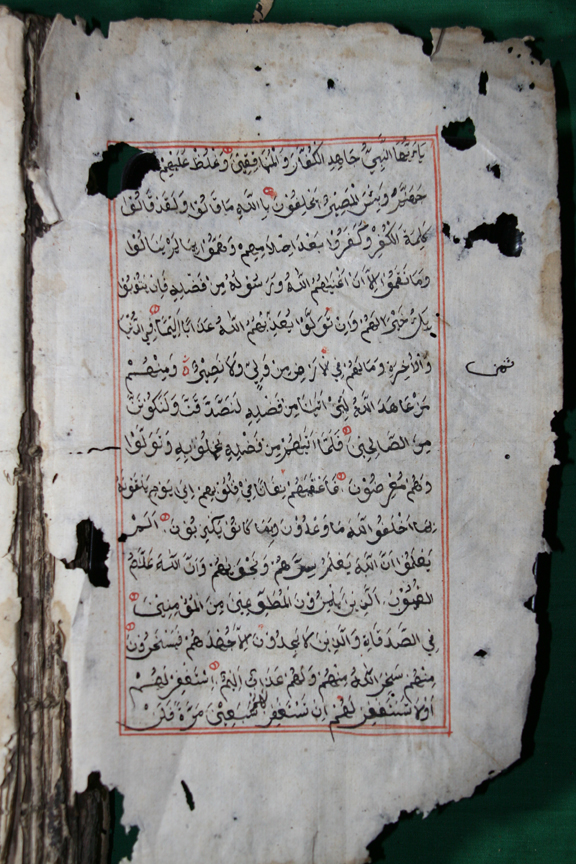 يايها النبي جاهد الكفار والمنافقين واغلظ عليهم
جهنم وبئس المصير يحلفون بالله ما قالوا ولقد قالوا
كلمة الكفر وكفروا بعد اسلامهم وهموا بما لم ينالوا
وما نقموا الا ان اغنيهم الله ورسوله من فضله فان يتوبوا
يك خيرا لهم وان يتولوا يعذبهم الله عذابا اليما في الدنيا
والاخرة وما لهم في الارض من ولي ولا نصير ومنهم
ثمن
من عاهد الله لئن اتينا من فضله لنصدقن ولنكونن
من الصالحين فلما اتيهم من فضله بخلوا به وتولوا
وهم معرضون فاعقبهم نفاقا في قلوبهم الى يوم يلقونه
بما اخلفوا الله ما وعدوه وبما كانوا يكذبون الم
يعلموا ان الله يعلم سرهم ونجويهم وان الله علام
الغيوب الذين يلمزون المطوعين من المؤمنين
في الصدقات والذين لا يجدون الا جهدهم فيسخرون
منهم سخر الله منهم ولهم عذاب اليم استغفر لهم
اولا تستغفر لهم ان تستغفر لهم سبعين مرة فلن